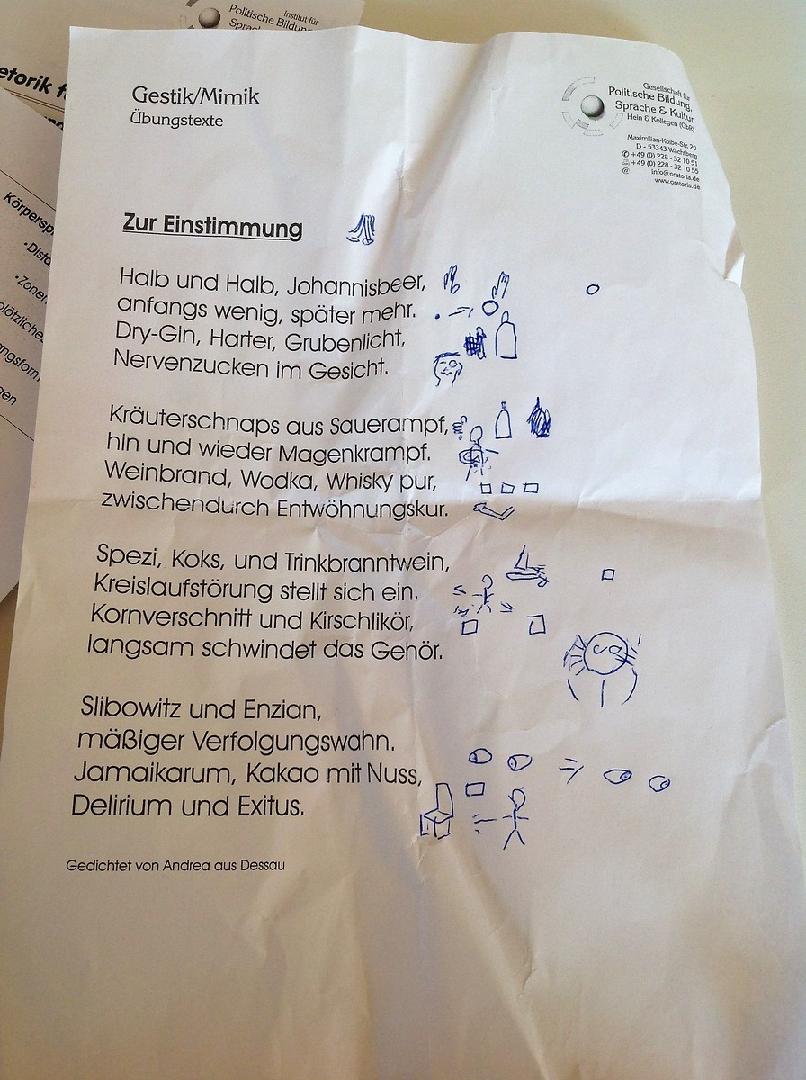 Institut für
Politische Bildung
etorik
Körpersp
Gestik/Mimik
Übungstexte
Gesellschaft für
Politische Bildung,
Sprache & Kultur
Hein & Kollegen (GbR)
www.oratoria.de
Zur Einstimmung
Halb und Halb, Johannisbeer,
anfangs wenig, später mehr.
Dry-Gin, Harter, Grubenlicht,
Nervenzucken im Gesicht.
Kräuterschnaps aus Sauerampf,
hin und wieder Magenkrampf.
Weinbrand, Wodka, Whisky pur,
zwischendurch Entwöhnungskur.
Spezi, Koks, und Trinkbranntwein,
Kreislaufstörung stellt sich ein.
Kornverschnitt und Kirschlikör,
langsam schwindet das Gehör.
Slibowitz und Enzian,
mäßiger Verfolgungswahn.
Jamaikarum, Kakao mit Nuss,
Delirium und Exitus.
Gedichtet von Andrea aus Dessau